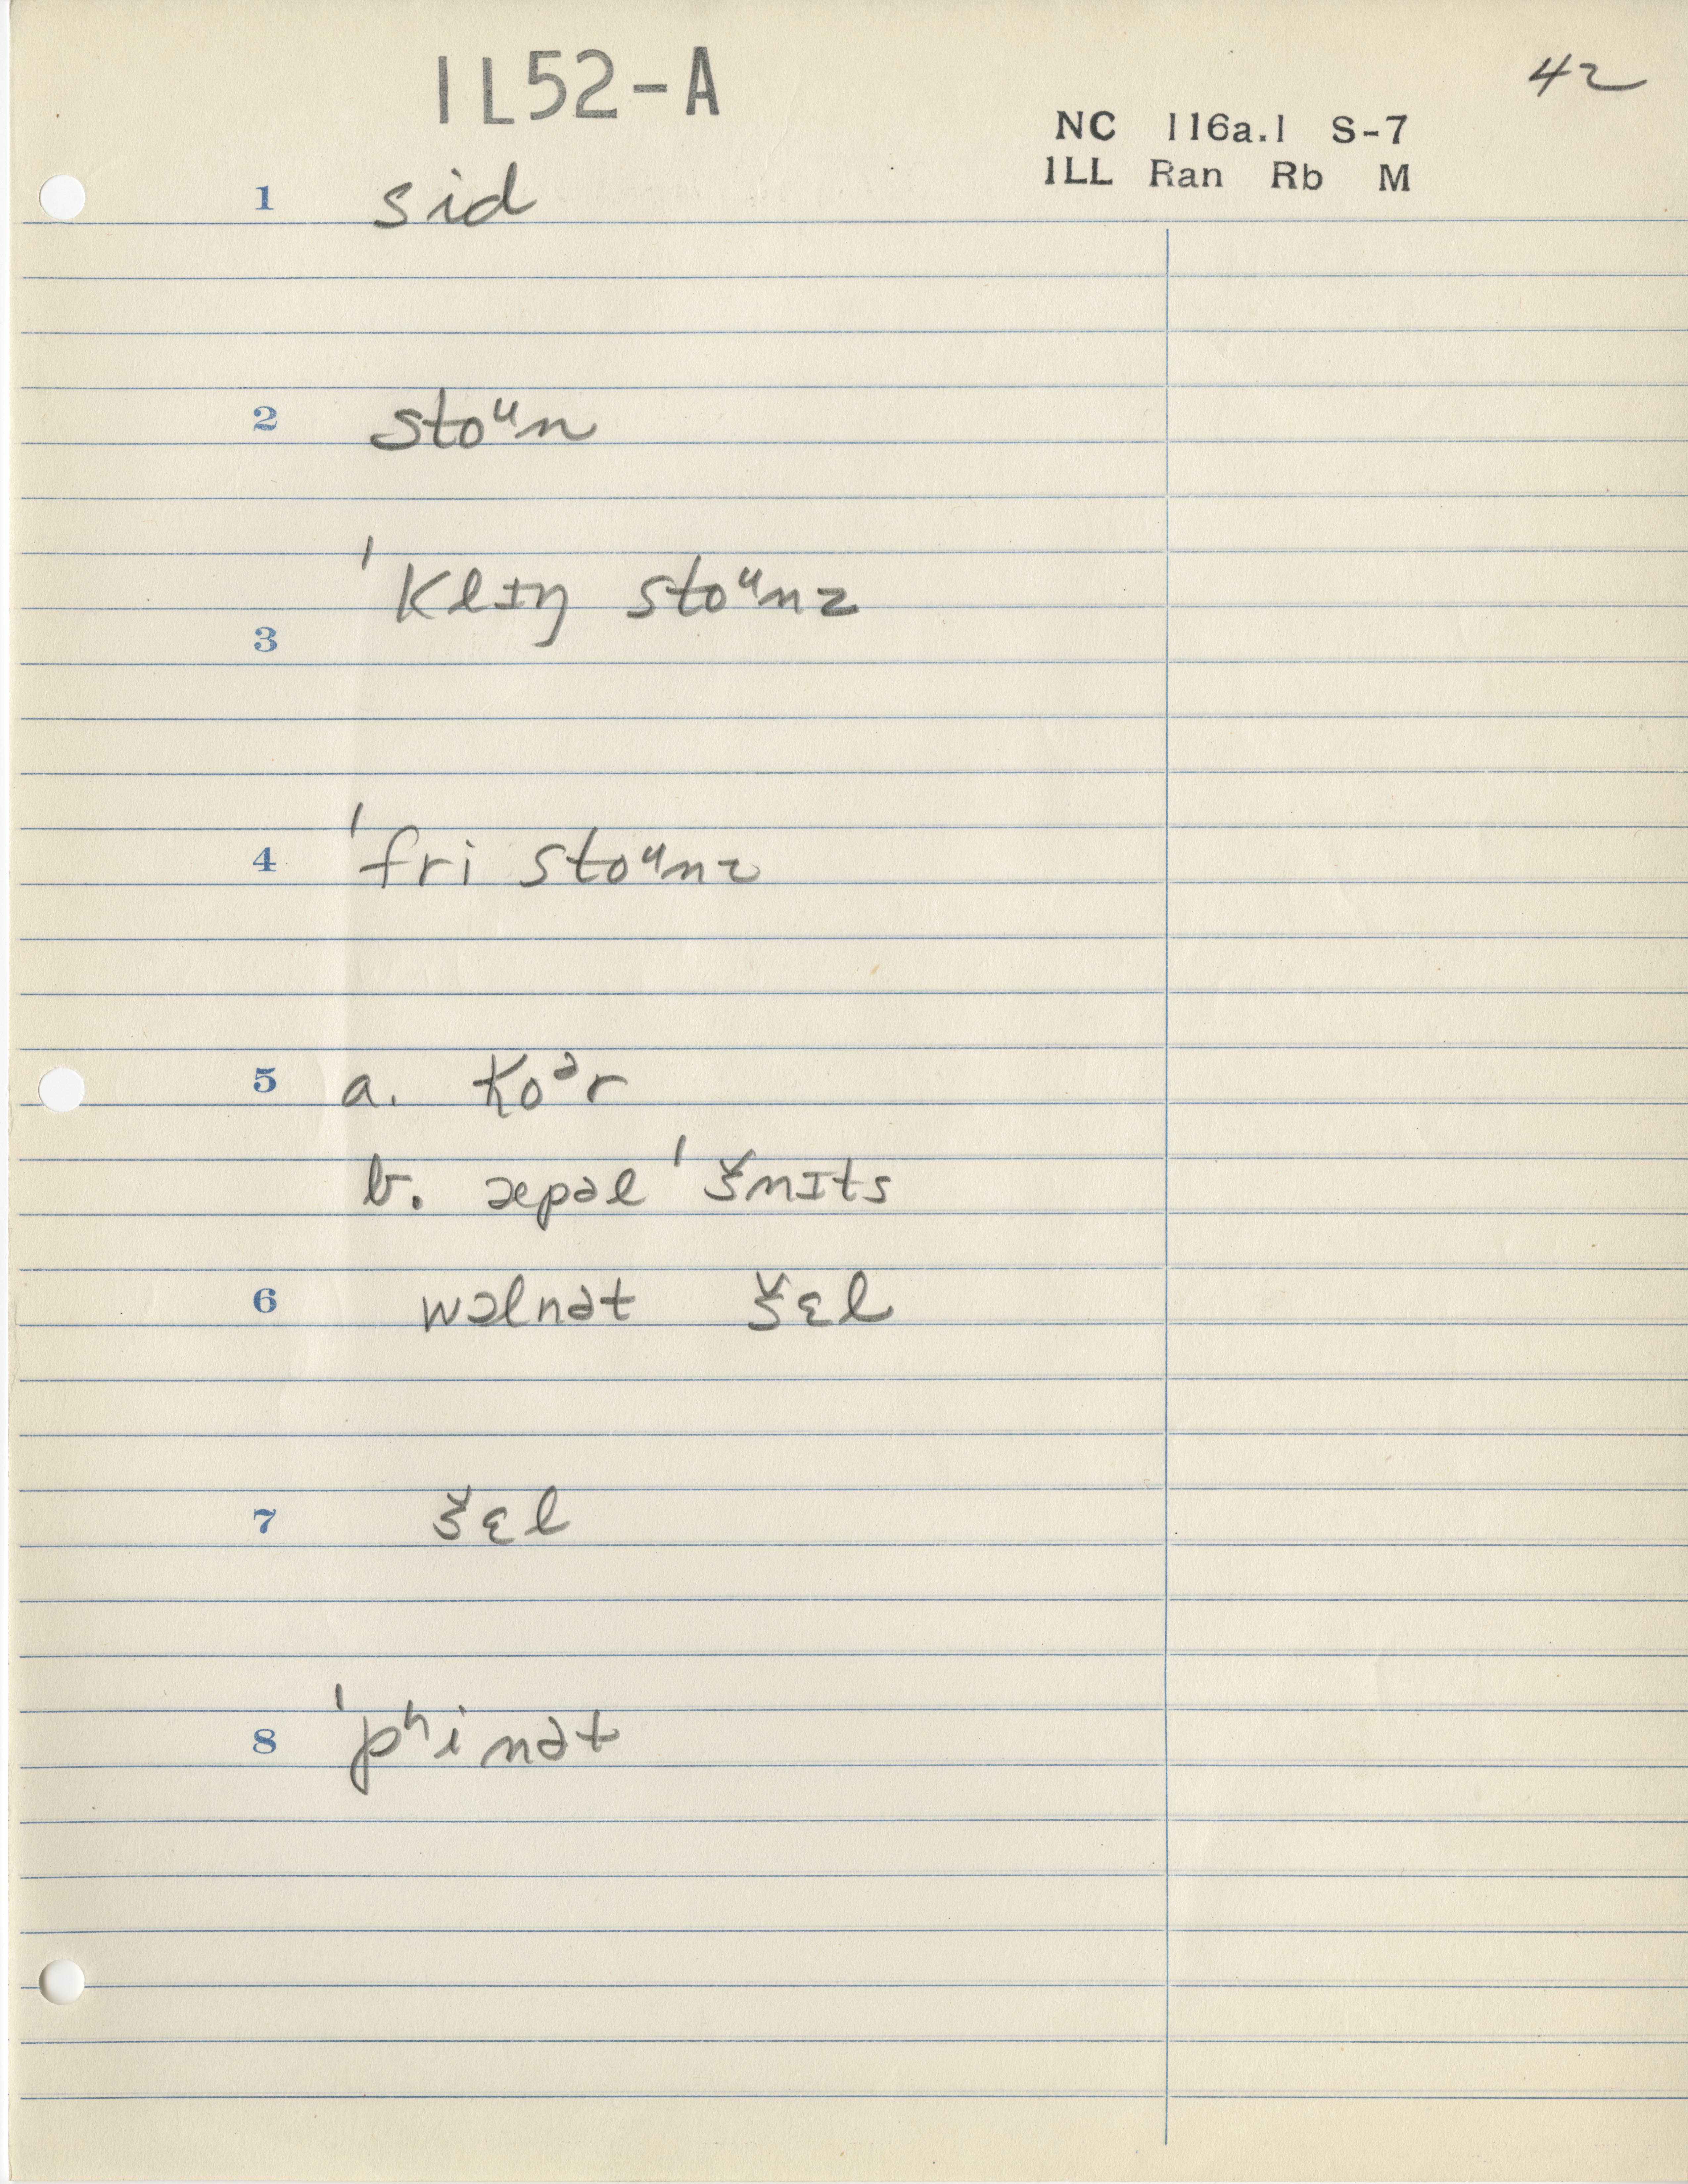 1L52-A
42
NC 116a.1 S-7
1LL Ran Rb M
1 sid
2 stoᵘn
3 ˈklɪŋ stoᵘnz
4 ˈfri stoᵘnz
5 a. koᵊr
b. æpəl ˈšnɪts
6 wɔlnət šɛl
7 šɛl
8 ˈpʰinət